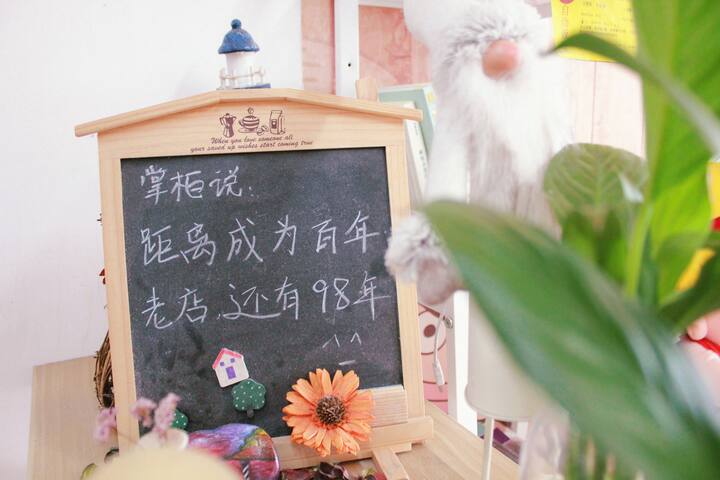 When you love someone all
your saved up wishes start coming true
掌柜说:
距离成为百年
老店,还有98年
^_^